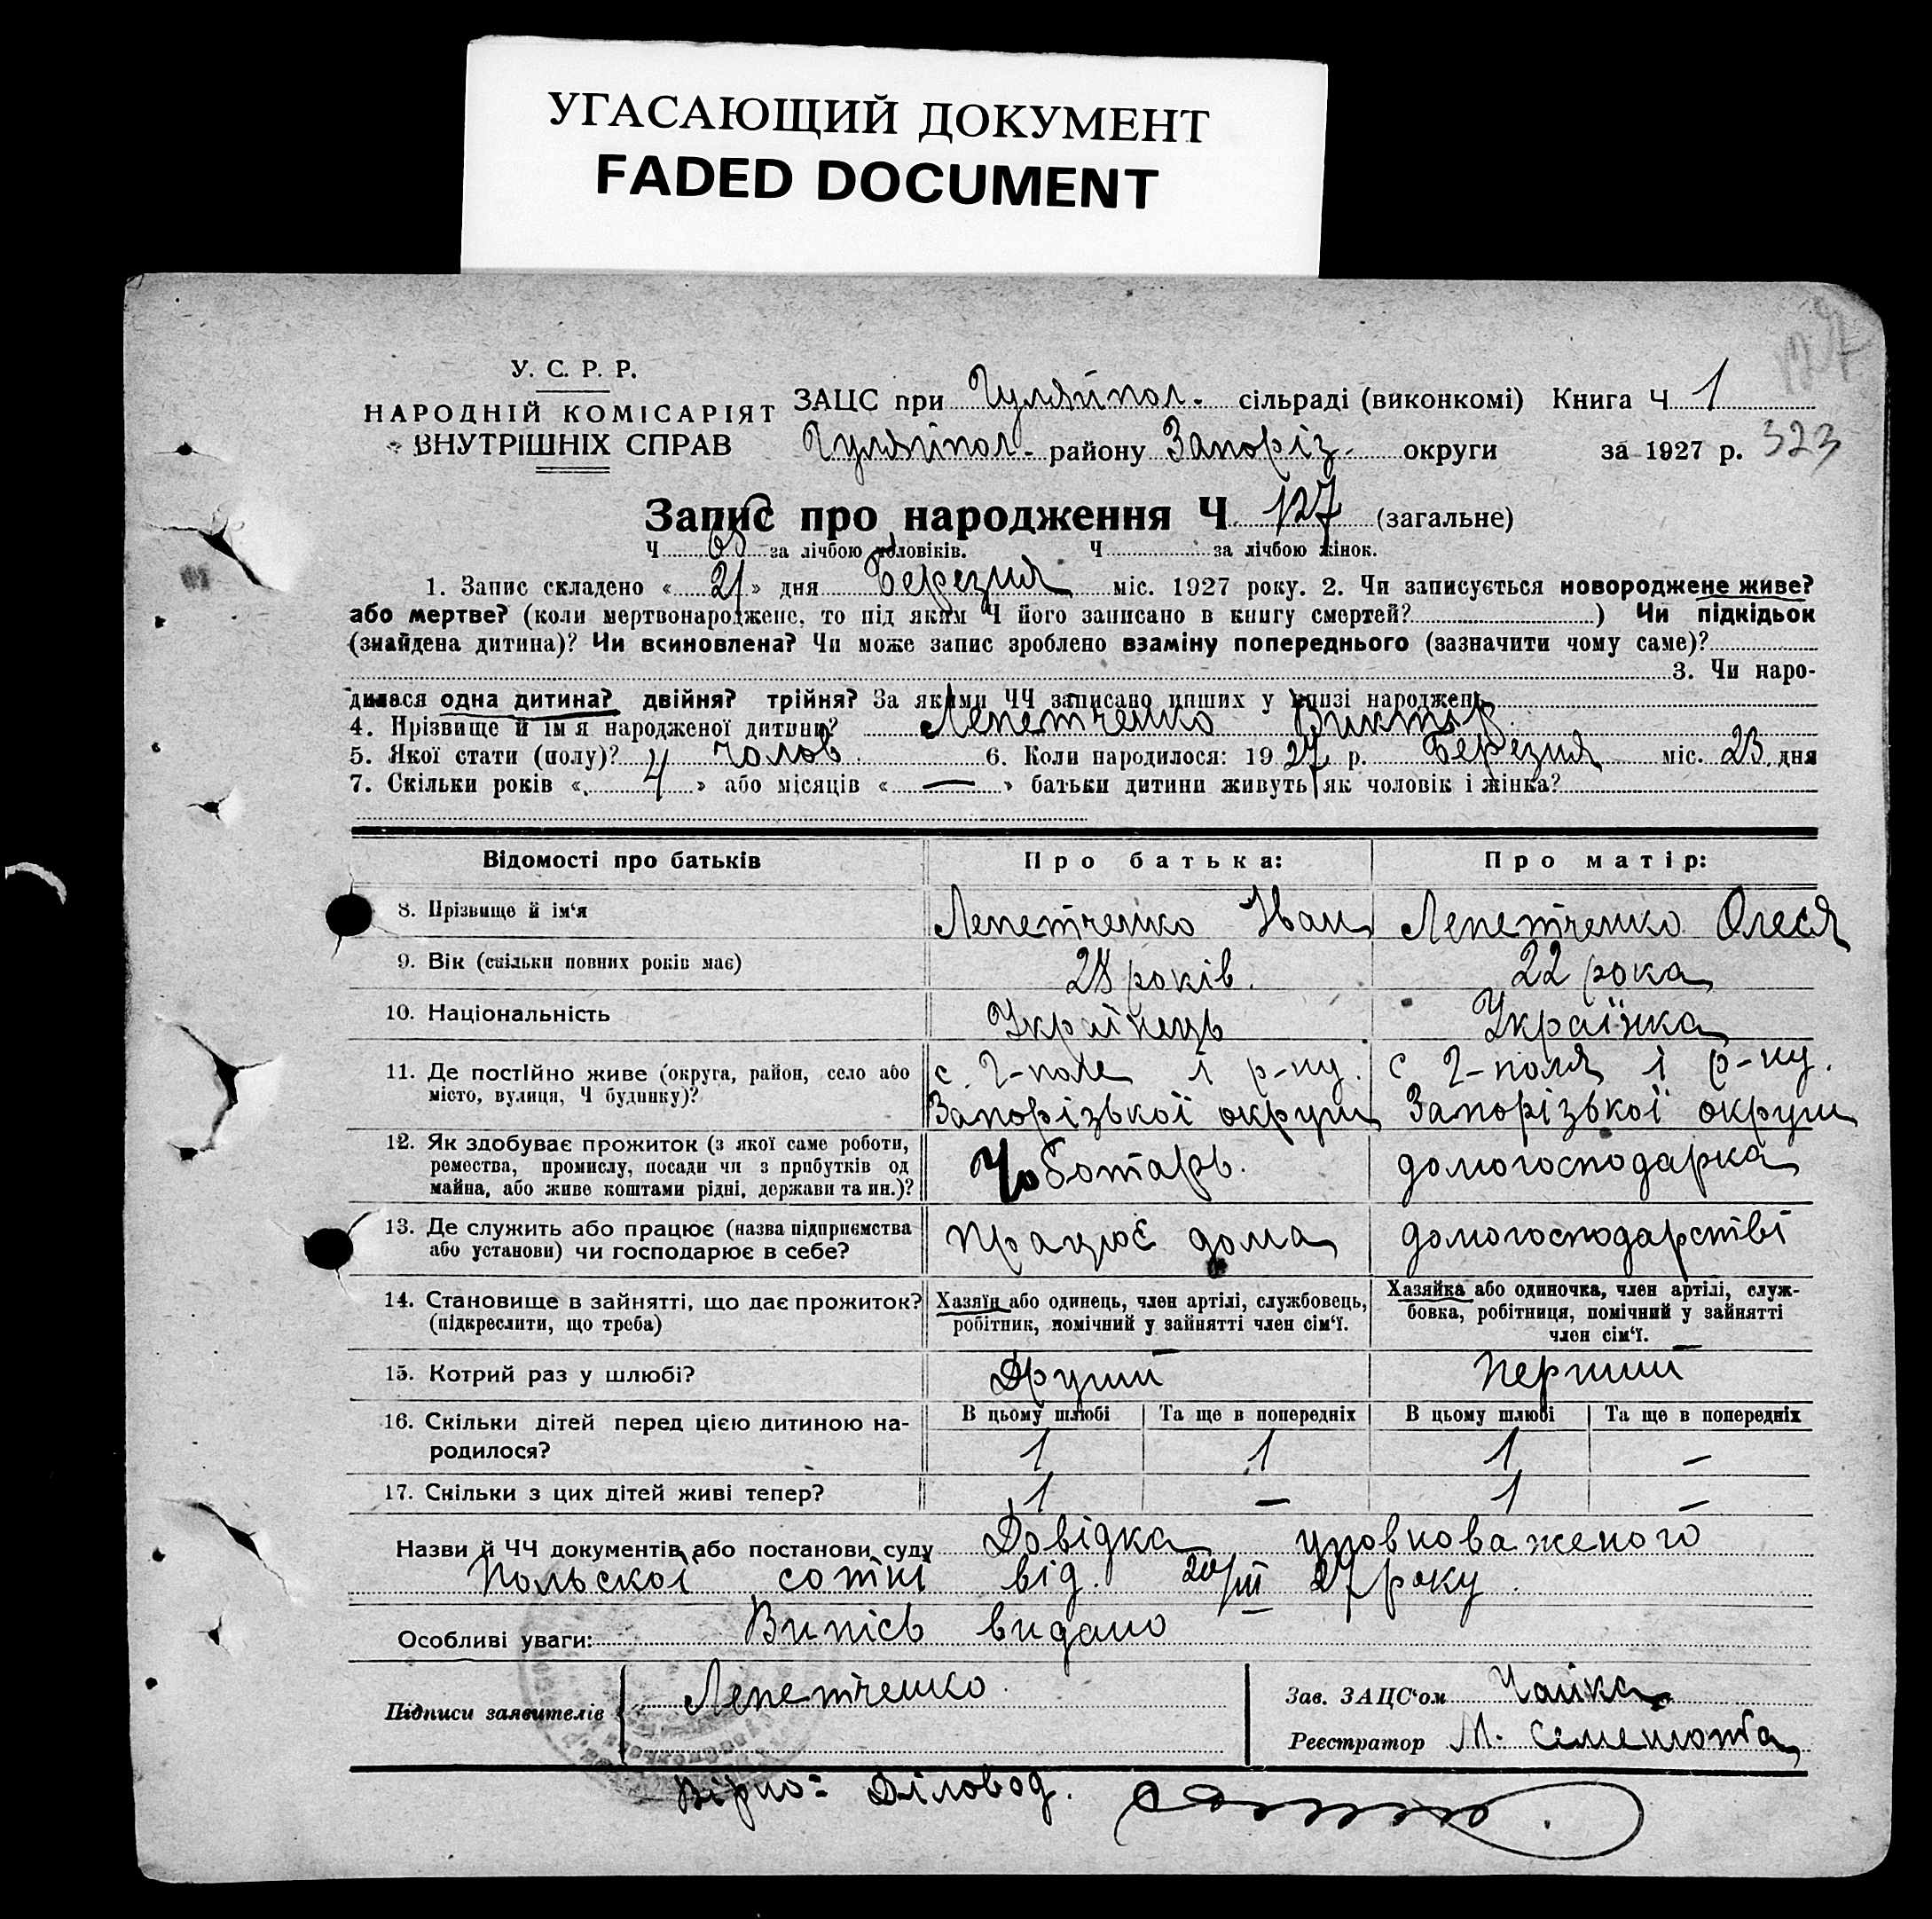 УГАСАЮЩИЙ ДОКУМЕНТ
FADED DOCUMENT
127
У. С. Р. Р.
НАРОДНІЙ КОМІСАРІЯТ
ВНУТРІШНІХ СПРАВ
ЗАЦС при Гуляйпол. сільраді (виконкомі) Книга Ч 1
Гуляйпол. району Запоріз. округи за 1927 р. 323
Запис про народження Ч 127 (загальне)
Ч за лічбою чоловіків. Ч за лічбою жінок.
1. Запис складено « 21 » дня Березня міс. 1927 року. 2. Чи записується новороджене живе?
або мертве? (коли мертвонароджене, то під яким Ч його записано в книгу смертей? ) Чи підкідьок
(знайдена дитина)? Чи всиновлена? Чи може запис зроблено взаміну попереднього (зазначити чому саме)?
3. Чи наро-
дилася одна дитина? двійня? трійня? За якими ЧЧ записано инших у книзі народжень
4. Прізвище й ім'я народженої дитини? Лепетченко Виктор
5. Якої стати (полу)? чолов. 6. Коли народилося: 1927 р. Березня міс. 23 дня
7. Скільки років « 4 » або місяців « — » батьки дитини живуть як чоловік і жінка?
Відомості про батьків Про батька: Про матір:
8. Прізвище й ім'я Лепетченко Іван Лепетченко Олеся
9. Вік (скільки повних років має) років. 22 рока
10. Національність Українець Українка
11. Де постійно живе (округа, район, село або с. Г-поле і р-ну. с Г-поля і р-ну.
місто, вулиця, Ч будинку)? Запорізької округи Запорізької округи
12. Як здобуває прожиток (з якої саме роботи,
ремества, промислу, посади чи з прибутків од Чоботарь. домогосподарка
майна, або живе коштами рідні, держави та ин.)?
13. Де служить або працює (назва підприємства
або установи) чи господарює в себе? працює дома домогосподарстві
14. Становище в зайнятті, що дає прожиток? Хазяїн або одинець, член артілі, службовець, Хазяйка або одиночка, член артілі, служ-
(підкреслити, що треба) робітник, помічний у зайнятті член сім'ї. бовка, робітниця, помічний у зайнятті
член сім'ї.
15. Котрий раз у шлюбі? Другий Перший
16. Скільки дітей перед цією дитиною на- В цьому шлюбі Та ще в попередніх В цьому шлюбі Та ще в попередніх
родилося? 1 1 1 —
17. Скільки з цих дітей живі тепер? 1 — 1 —
Назви й ЧЧ документів або постанови суду Довідка уповноваженого
Польскої сотні від. 20/III 27 року.
Особливі уваги: Випісь видано
Підписи заявителів Лепетченко Зав. ЗАЦС'ом Чайка
Реєстратор М. Семенюта
Вірно: Діловод.